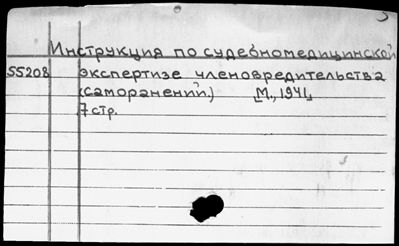 Инструкция по судебномедицинской
55208 экспертизе членовредительства
(саморанений.) М., 1941,
7 стр.